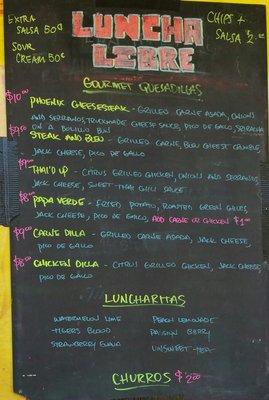 EXTRA
SALSA 50¢
SOUR
CREAM 50¢
LUNCHA
LIBRE
CHIPS +
SALSA $2.00
GOURMET QUESADILLAS
$10.00 PHOENIX CHEESESTEAK - GRILLED CARNE ASADA, ONIONS
AND SERRANOS, CHEESE SAUCE, PICO DE GALLO, SRIRACHA
ON A BOLILLO BUN
$9.50 STEAK AND BLEU - GRILLED CARNE, BLEU CHEESE CRUMBLE,
JACK CHEESE, PICO DE GALLO
$9.00 THAI'D UP - CITRUS GRILLED CHICKEN, ONIONS AND SERRANOS,
JACK CHEESE, SWEET THAI CHILI SAUCE
$8.00 PAPA VERDE - FRIED POTATO, ROASTED GREEN CHILES,
JACK CHEESE, PICO DE GALLO, ADD CARNE OR CHICKEN $1.00
$9.00 CARNE DILLA - GRILLED CARNE ASADA, JACK CHEESE,
PICO DE GALLO
$8.00 CHICKEN DILLA - CITRUS GRILLED CHICKEN, JACK CHEESE,
PICO DE GALLO
LUNCHARITAS
WATERMELON LIME PEACH LEMONADE
TIGERS BLOOD PASSION BERRY
STRAWBERRY GUAVA UNSWEET TEA
CHURROS $2.00